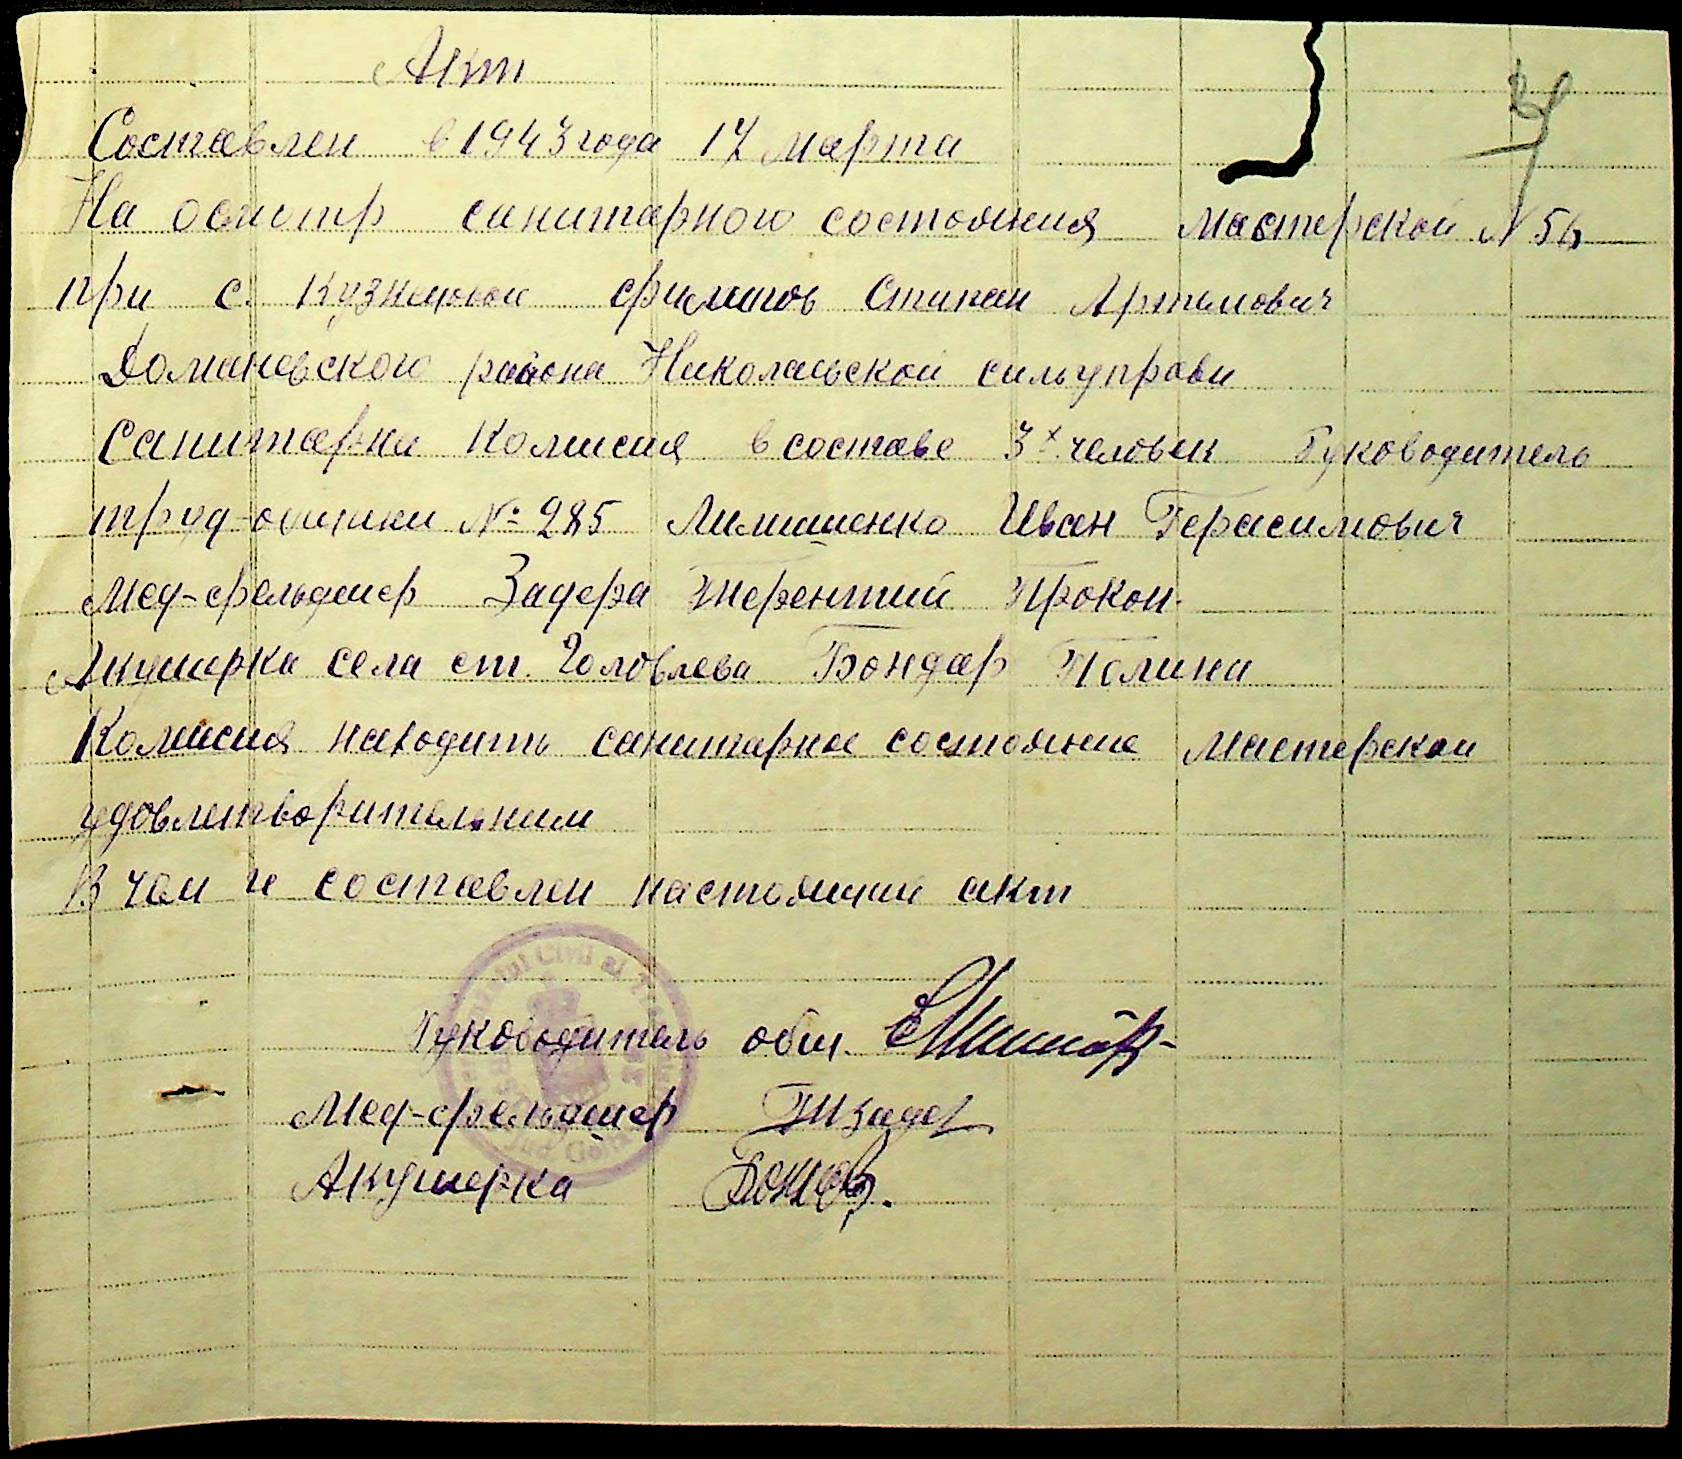 Акт
Составлен в 1943 года 17 марта
На осмотр санитарного состояния мастерской № 56
при с. Кузнецовои Филипов Стипан Артимович
Домановского района Николаевской сильуправи
Санитарна Комисия в составе 3х человек Руководитель
труд-общини №285 Иван Герасимович
Мед-фельдшер Задера Терентий Прокоп.
Акушерка села ст. Головлева Бондар Полина
Комисия находить санитарное состояние мастерской
удовлетворительним
В чом и составлен настоящий акт
Руководитель общ.
Мед-фельдшер
Акушерка